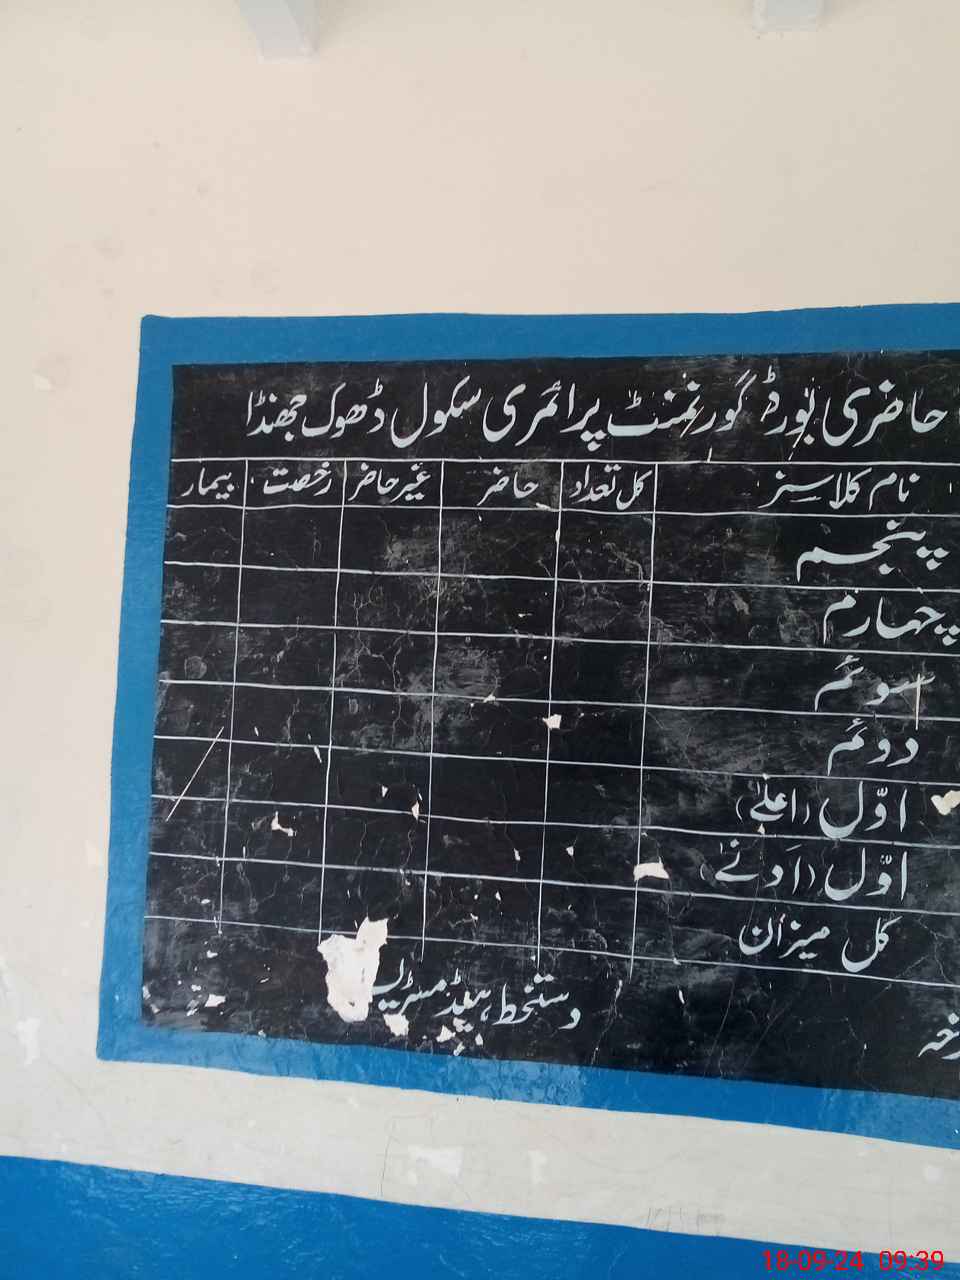 حاضری بورڈ گورنمنٹ پرائمری سکول ڈھوک جھنڈا
نام کلاسز کل تعداد حاضر غیر حاضر رخصت بیمار
پنجم
چہارم
سوئم
دوئم
اوّل (اعلےٰ)
اوّل (اَدنےٰ)
کل میزان
دستخط ہیڈمسٹریس
18-09-24 09:39